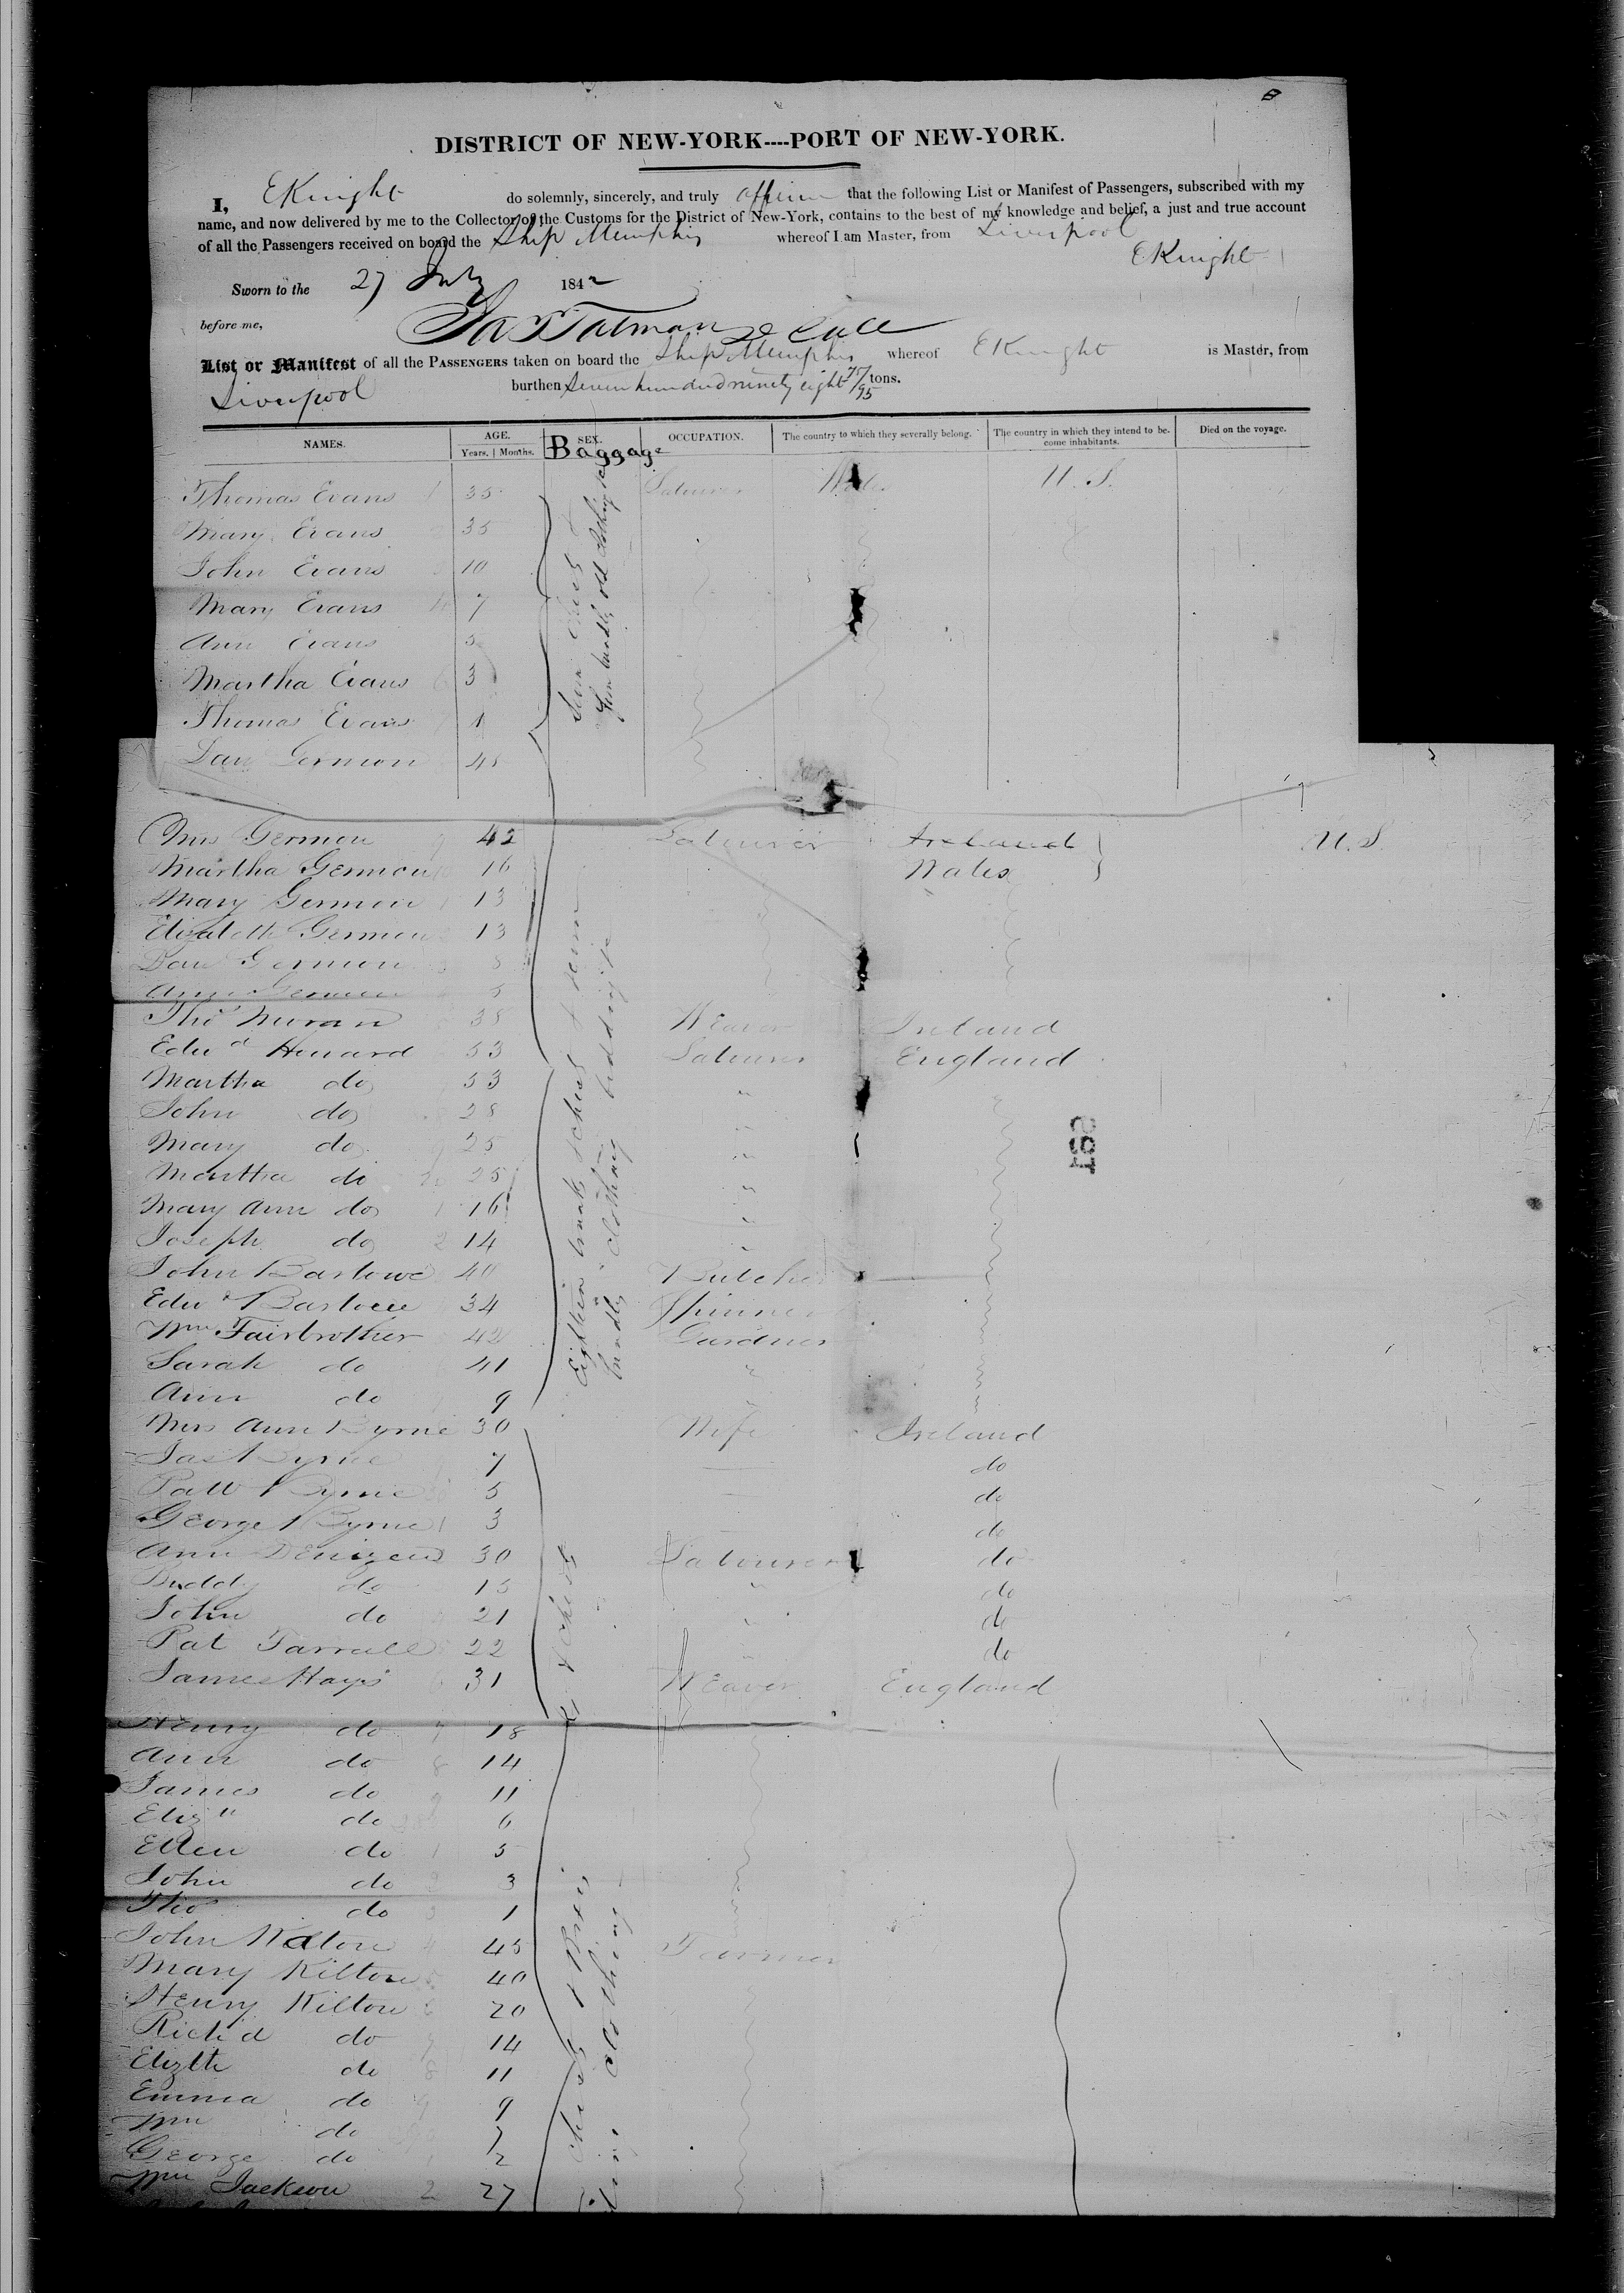 DISTRICT OF NEW-YORK----PORT OF NEW-YORK.
I, EKnight do solemnly, sincerely, and truly affirm that the following List or Manifest of Passengers, subscribed with my
name, and now delivered by me to the Collector of the Customs for the District of New-York, contains to the best of my knowledge and belief, a just and true account
of all the Passengers received on board the Ship Memphis whereof I am Master, from Liverpool
EKnight
Sworn to the 27 July 1842
before me,
List or Manifest of all the PASSENGERS taken on board the Ship Memphis whereof EKnight is Master, from
Liverpool burthen Seven hundred ninety eight 75/95 tons.
NAMES. AGE. Years. | Months. SEX. Baggage OCCUPATION. The country to which they severally belong. The country in which they intend to become inhabitants. Died on the voyage.
Thomas Evans 35 Labourer Wales U.S.
Mary Evans 35
John Evans 10
Mary Evans 7
Ann Evans 5
Martha Evans 3
Thomas Evans 1
Dan Germon 45
Mrs Germon 42 Labourer Ireland U.S.
Martha Germon 16 Wales
Mary Germon 13
Elizabeth Germon 13
Dan Germon 8
Ann Germon 5
Thos Moran 38 Weaver Ireland
Edwd 53 Labourer England
Martha do 53
John do 28
Mary do 25
Martha do 25
Mary Ann do 16
Joseph do 14
John Barlowe 40 Butcher
Edwd Barlowe 34 Spinner
Wm Fairbrother 42 Gardner
Sarah do 41
Ann do 9
Mrs Ann Byrne 30 Wife Ireland
Jas Byrne 7 do
Patt Byrne 5 do
George Byrne 3 do
Ann 30 Labourer do
Buddy do 15 do
John do 21 do
Pat Farrall 22 do
James Hays 31 Weaver England
Henry do 18
Ann do 14
James do 11
Elizh do 6
Ellen do 5
John do 3
Tho do 1
John Kilton 45 Farmer
Mary Kilton 40
Henry Kilton 20
Richd do 14
Elizth do 11
Emma do 9
Wm do 7
George do 2
Wm Jackson 27